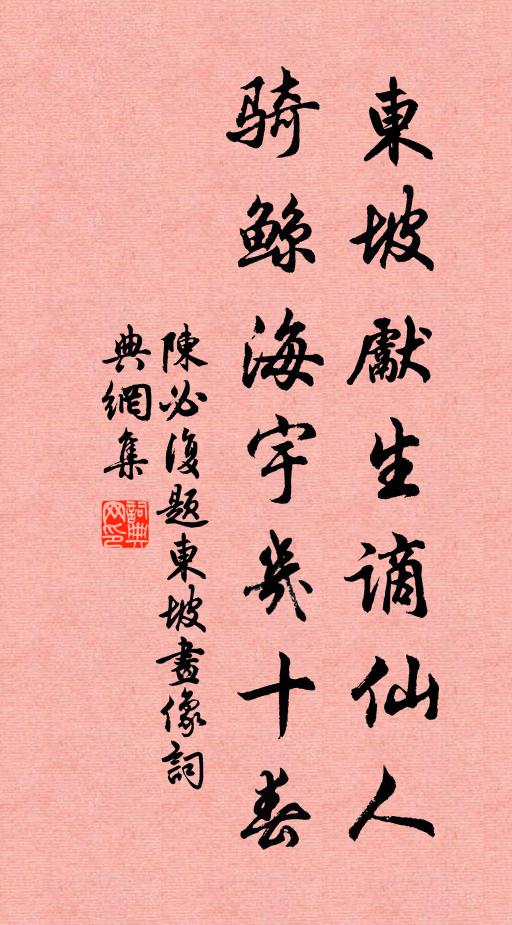 東坡獻生謫仙人
騎鯨海宇幾十春
陳必復題東坡畫像詞
典網集
詞典網印